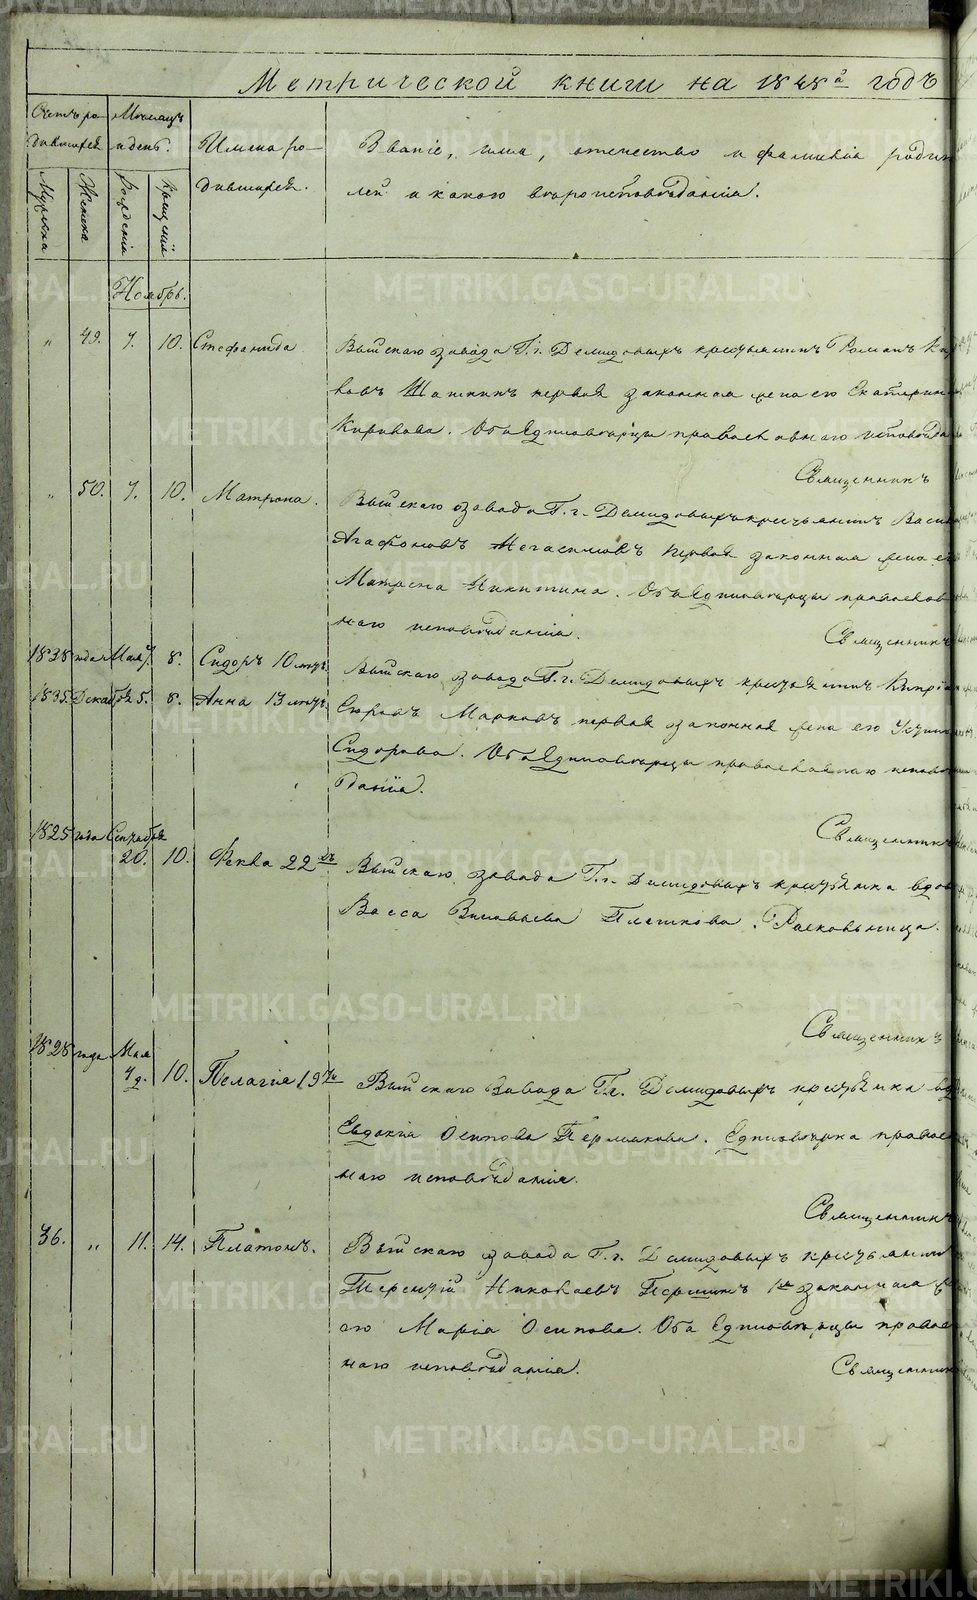 Метрической книги на 1848й годъ
Счетъ ро-
дившихся
Мѣсяцъ
и день.
Имена ро-
дившихся.
Званіе, имя, отечество и фамилія родит
лей и какого вѣроисповѣданія.
Мужеска
Женска
Рожденія
Крещенія
Ноябрь.
" 49. 7. 10. Стефанида
Выйскаго завода Г.г. Демидовыхъ крестьянинъ Романъ
Шашкинъ первая законная жена его Екатерин
Оба Единовѣрцы православнаго исповѣда
Священникъ
" 50. 7. 10. Матрона.
Выйскаго завода Г.г. Демидовыхъ крестьянинъ Васил
Агафоновъ первая законная жена е
Матрена Никитина. Оба Единовѣрцы православ
наго исповѣданія.
Священникъ
1838 года Мая 7. 8. Сидоръ 10 лѣтъ
1835 Декабря 5. 8. Анна 13 лѣтъ
Выйскаго завода Г.г. Демидовыхъ крестьянинъ Кипрія
Марковъ первая законная жена его
Сидорова. Оба Единовѣрцы православнаго исповѣ
данія.
Священникъ
1825 года Сентября
20. 10. Фекла 22хъ
Выйскаго завода Г.г. Демидовыхъ крестьянка вдов
Васса Васильева Плешкова. Раскольница.
Священникъ
1828 года Мая
4д. 10. Пелагія 19ти
Выйскаго Завода Г.г. Демидовыхъ крестьянка вд
Евдокія Осипова Пермякова. Единовѣрка правос
наго исповѣданія.
Священникъ
36. " 11. 14. Платонъ.
Выйскаго завода Г.г. Демидовыхъ крестьянин
Терентій Николаевъ Першинъ 1я законная
его Марія Осипова. Оба Единовѣрцы правос
наго исповѣданія.
Священник
METRIKI.GASO-URAL.RU